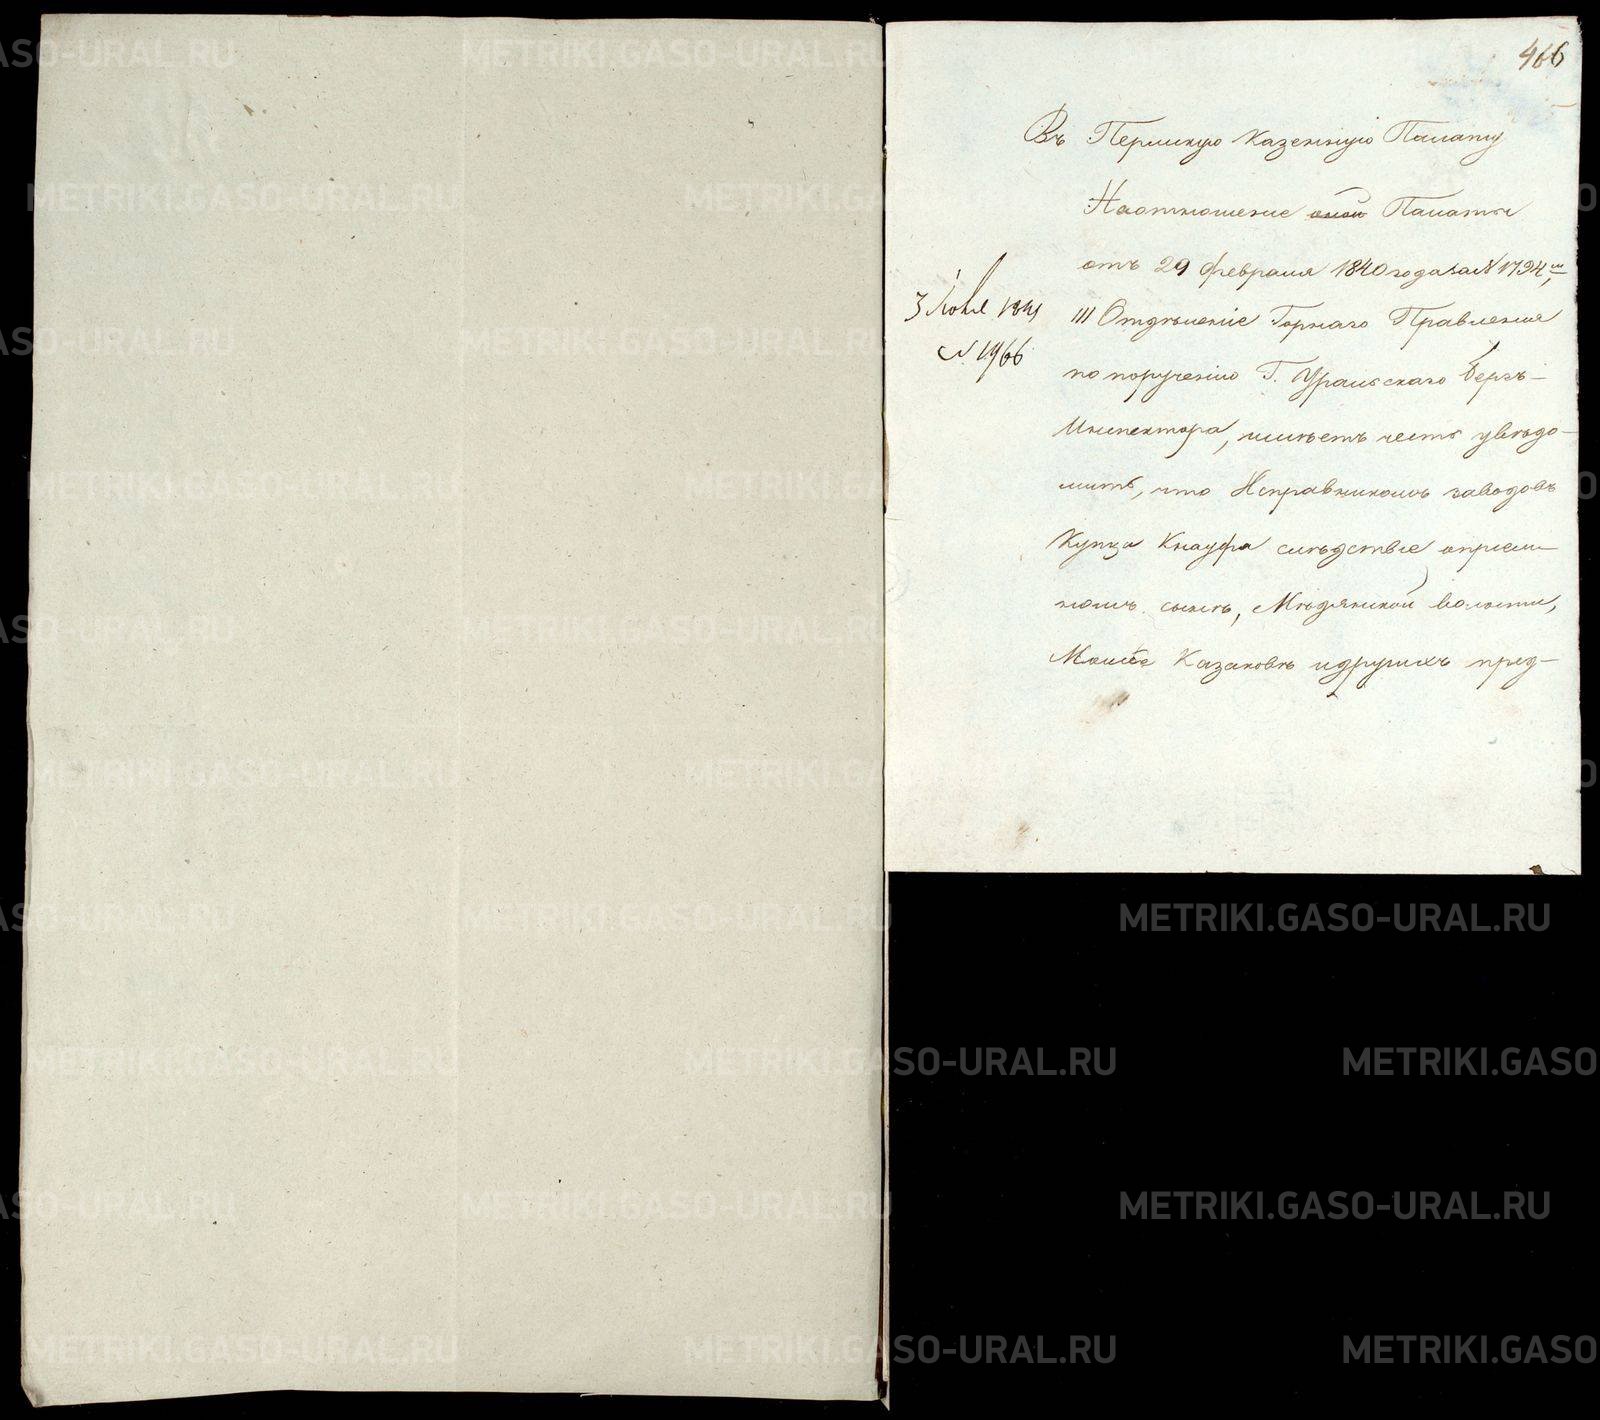 466
Въ Пермскую Казенную Палату
На отношеніе оной Палаты
отъ 29 февраля 1840 года за № 1794,
3 Іюля 1841
№ 1966
III Отдѣленіе Горнаго Правленія
по порученію Г. Уральскаго Бергъ-
Инспектора, имѣетъ честь увѣдо-
мить, что Исправникомъ заводовъ
Купца Кнауфа слѣдствіе опріем-
номъ сынѣ, Мѣдянской волости,
Казаковѣ и другихъ пред-
METRIKI.GASO-URAL.RU